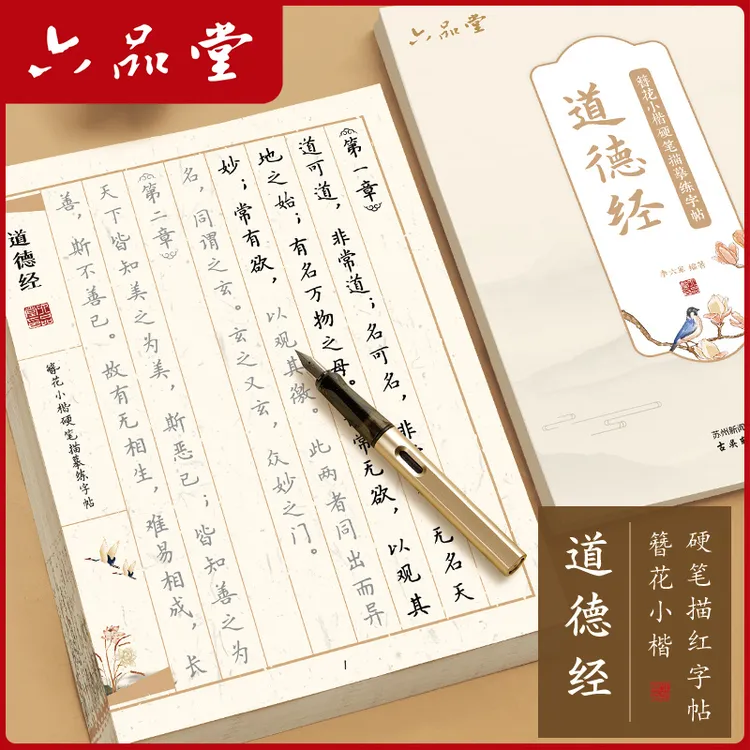 六品堂
第一章
道可道，非常道；名可名，非
无名天
地之始；有名万物之母。常无欲，以观其
妙；常有欲，以观其徼。此两者同出而异
名，同谓之玄。玄之又玄，众妙之门。
第二章
天下皆知美之为美，斯恶已；皆知善之为
善，斯不善已。故有无相生，难易相成，长
道德经
簪花小楷硬笔描摹练字帖
1
六品堂
簪花小楷硬笔描摹练字帖
道德经
李六军 编著
苏州新闻
古吴
硬笔描红字帖
簪花小楷
道德经